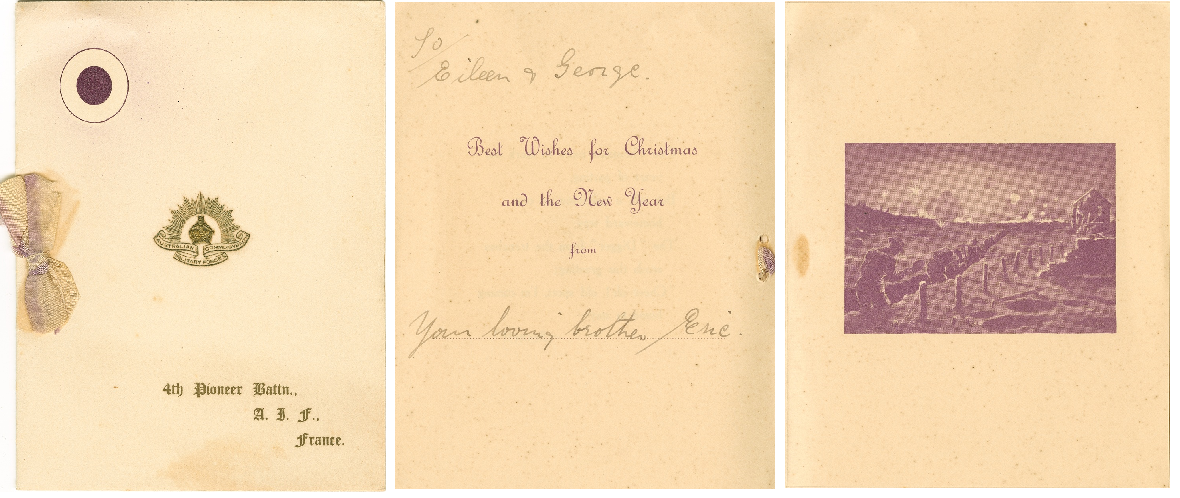 AUSTRALIAN COMMONWEALTH
MILITARY FORCES
4th Pioneer Battn.,
A. I. F.,
France.
To
Eileen & George.
Best Wishes for Christmas
and the New Year
from
Your loving brother Eric.